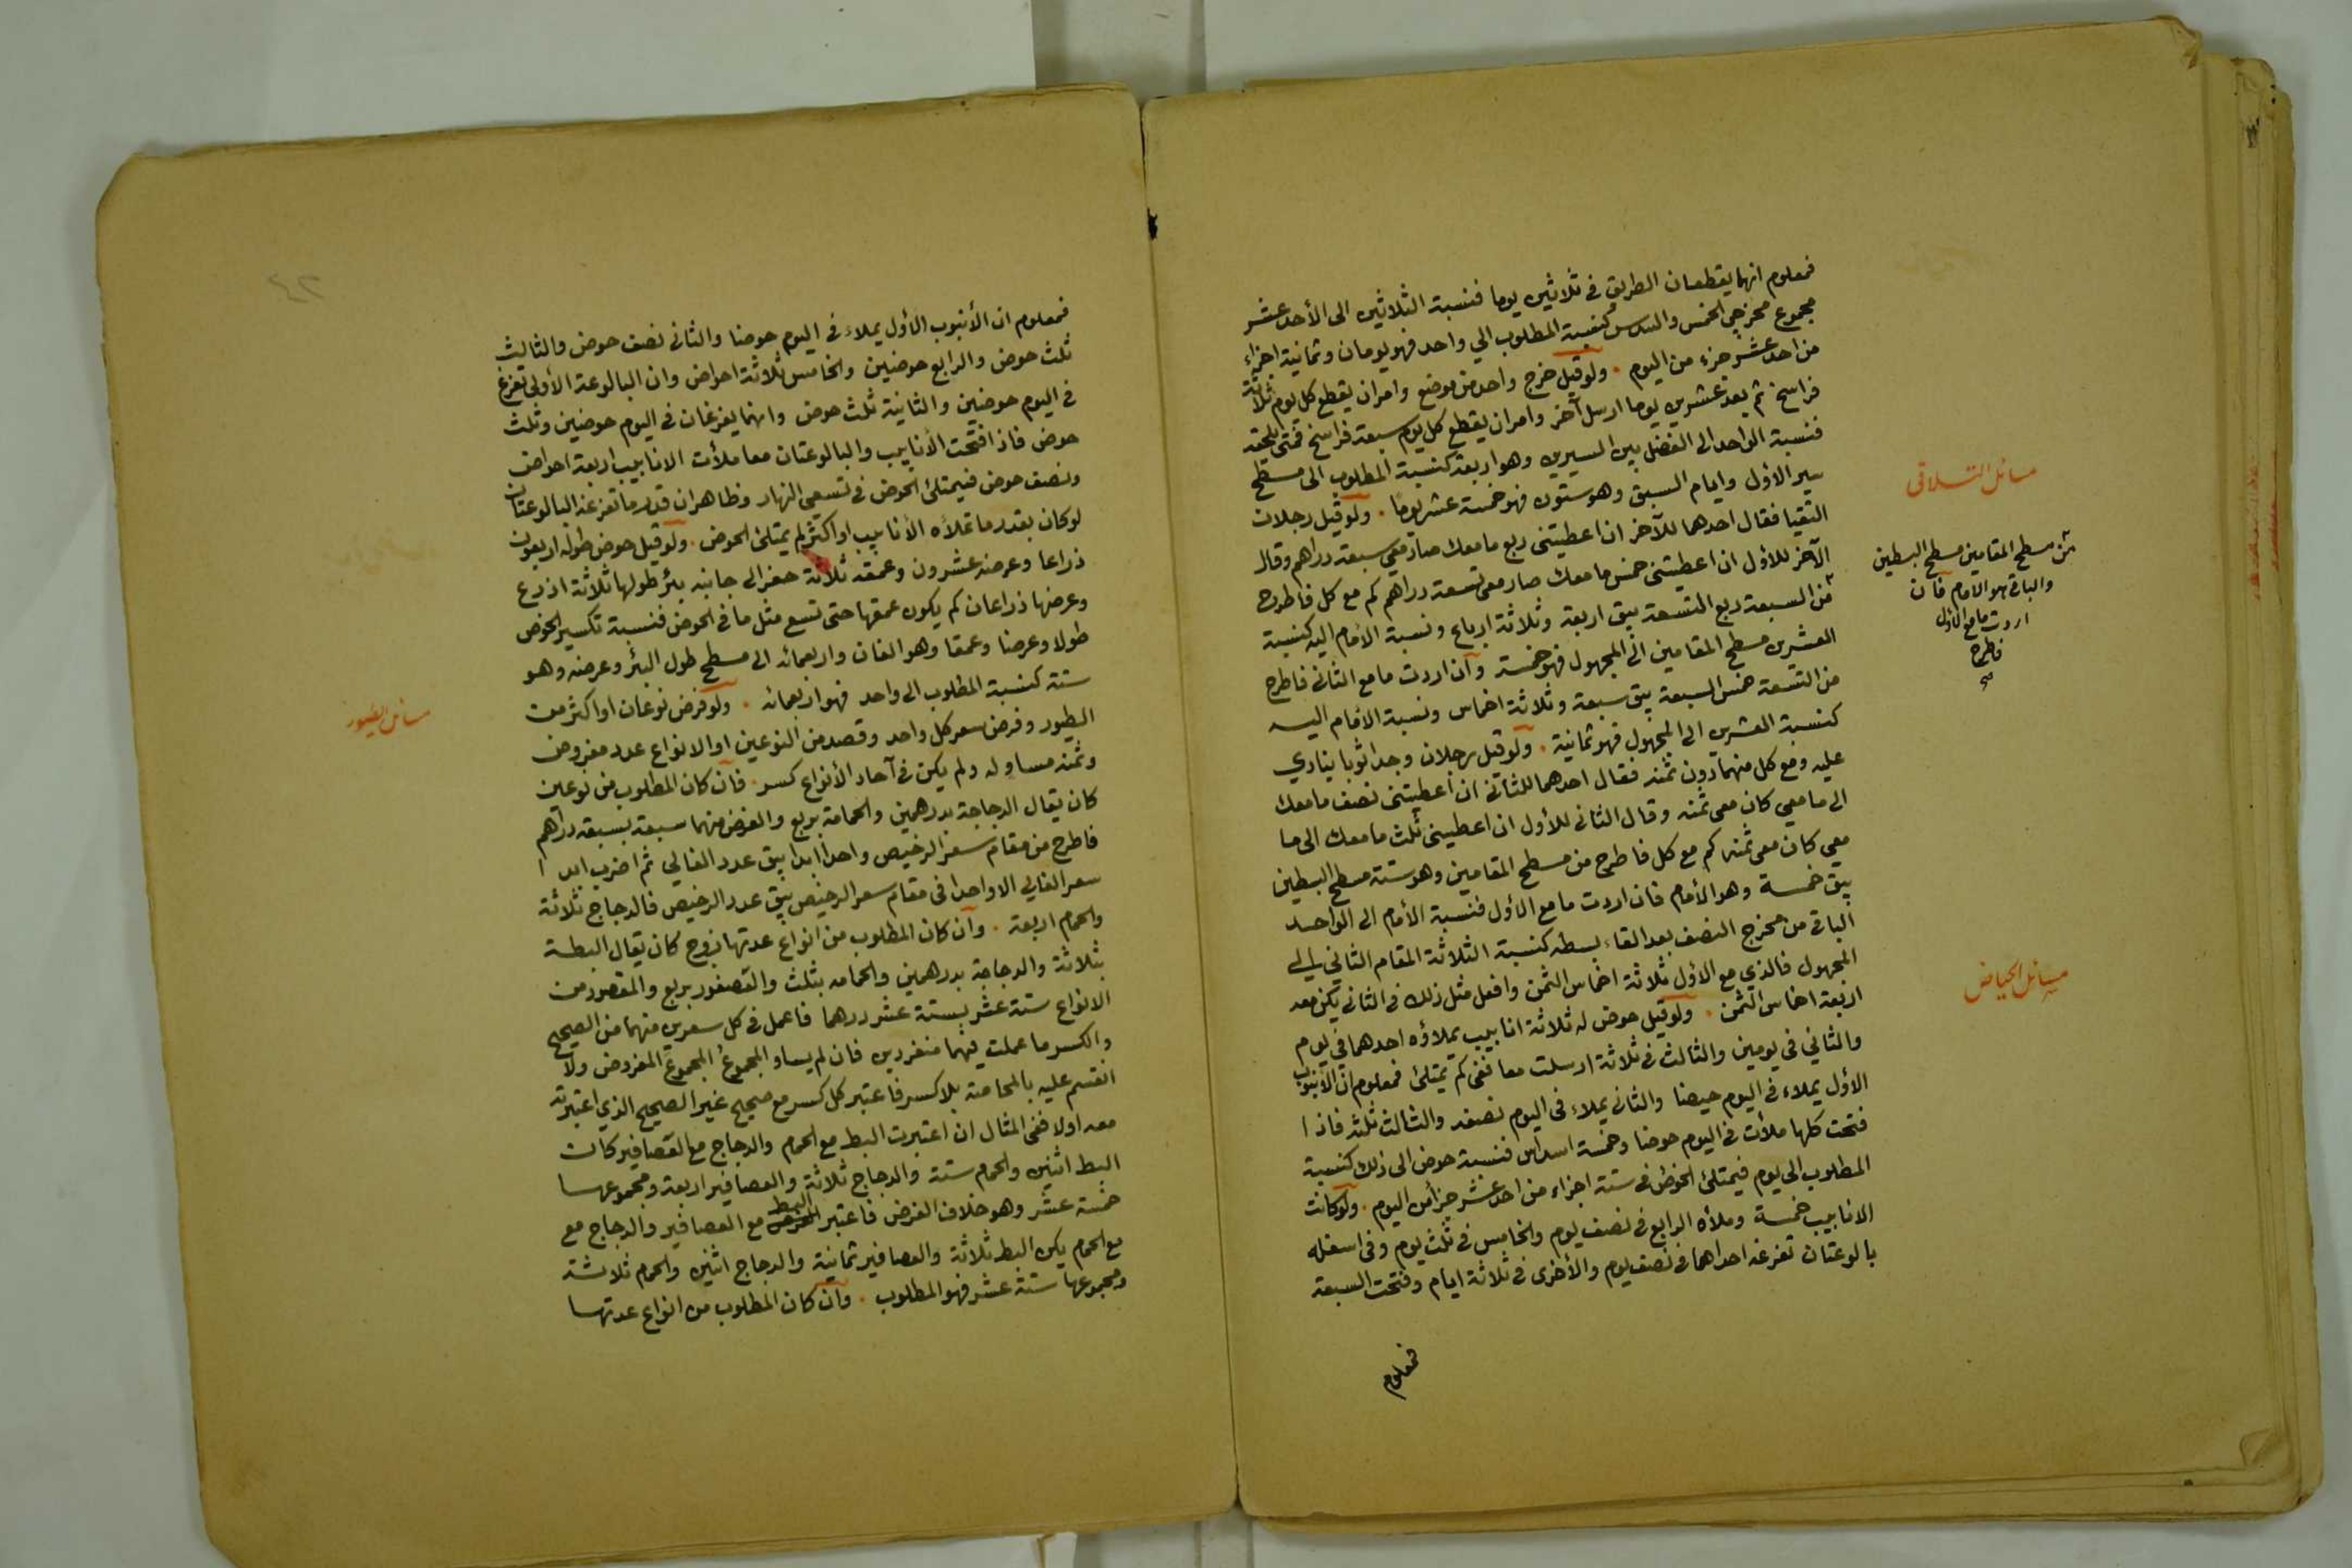 فمعلوم انهما يقطعان الطريق في ثلاثين يوما فنسبة الثلاثين الى الأحد عشر
مجموع مخرجي الخمس والسدس كنسبة المطلوب الي واحد فهو يومان وثمانية اجزاء
من احد عشر جزء من اليوم . ولو قيل خرج واحد من موضع وامر ان يقطع كل يوم ثلاثة
فراسخ ثم بعد عشرين يوما ارسل آخر وامر ان يقطع كل يوم سبعة فراسخ فمتى يلحقه
فنسبة الواحد الى الفضل بين السيرين وهو اربعة كنسبة المطلوب الى مسطح
سير الأول وايام السبق وهو ستون فهو خمسة عشر يوما . ولو قيل رجلان
مسائل التلاقى
التقيا فقال احدهما للآخر ان اعطيتنى ربع ما معك صار معي سبعة دراهم وقال
الآخر للأول ان اعطيتنى خمس ما معك صار معى تسعة دراهم كم مع كل فاطرح
من السبعة ربع التسعة يبق اربعة وثلاثة ارباع ونسبة الأمام اليه كنسبة
العشرين مسطح المقامين الى المجهول فهو خمسة وان اردت ما مع الثانى فاطرح
من مسطح المقامين مسطح البسطين
والباقى هو الامام فان
اردت ما مع الأول
فاطرح
صح
من التسعة خمس السبعة يبق سبعة وثلاثة اخماس ونسبة الأمام اليه
كنسبة العشرين الى المجهول فهو ثمانية . ولو قيل رجلان وجدا ثوبا ينادي
عليه ومع كل منهما دون ثمنه فقال احدهما للثانى ان اعطيتنى نصف ما معك
الى ما معي كان معى ثمنه وقال الثانى للأول ان اعطيتنى ثلث ما معك الى ما
معي كان معى ثمنه كم مع كل فاطرح من مسطح المقامين وهو ستة مسطح البسطين
يبق خمسة وهو الأمام فان اردت ما مع الأول فنسبة الأمام الى الواحد
الباقى من مخرج النصف بعد القاء بسطه كنسبة الثلاثة المقام الثاني الى
المجهول فالذي مع الأول ثلاثة اخماس الثمن وافعل مثل ذلك فى الثانى يكن معه
اربعة اخماس الثمن . ولو قيل حوض له ثلاثة انابيب يملاؤه احدهما في يوم
مسائل الحياض
والثاني في يومين والثالث في ثلاثة ارسلت معا ففى كم يمتلئ فمعلوم ان الأنبوب
الأول يملاء في اليوم حوضا والثانى يملاء في اليوم نصفه والثالث ثلثه فاذا
فتحت كلها ملأت في اليوم حوضا وخمسة اسداس فنسبة حوض الى ذلك كنسبة
المطلوب الى يوم فيمتلئ الحوض في ستة اجزاء من احد عشر جزأ من اليوم . ولو كانت
الانابيب خمسة وملأه الرابع في نصف يوم والخامس في ثلث يوم وفى اسفله
بالوعتان تفرغه احداهما في نصف يوم والأخرى في ثلاثة ايام وفتحت السبعة
فمعلوم
٤٢
فمعلوم ان الأنبوب الأول يملاء فى اليوم حوضا والثانى نصف حوض والثالث
ثلث حوض والرابع حوضين والخامس ثلاثة احواض وان البالوعة الأولى تفرغ
في اليوم حوضين والثانية ثلث حوض وانهما يفرغان في اليوم حوضين وثلث
حوض فاذا فتحت الأنابيب والبالوعتان معا ملأت الانابيب اربعة احواض
ونصف حوض فيمتلئ الحوض في تسعى النهار وظاهر ان قدر ما تفرغه البالوعتان
لو كان بقدر ما تملأه الأنابيب او اكثر لم يمتلئ الحوض . ولو قيل حوض طوله اربعون
ذراعا وعرضه عشرون وعمقه ثلاثة حفر الى جانبه بئر طولها ثلاثة اذرع
وعرضها ذراعان كم يكون عمقها حتى تسع مثل ما في الحوض فنسبة تكسير الحوض
طولا وعرضا وعمقا وهو الفان واربعمائه الى مسطح طول البئر وعرضه وهو
ستة كنسبة المطلوب الى واحد فهو اربعمائه . ولو فرض نوعان او اكثر من
مسائل الطيور
الطيور وفرض سعر كل واحد وقصد من النوعين او الانواع عدد مفروض
وثمنه مساو له ولم يكن في آحاد الأنواع كسر . فان كان المطلوب من نوعين
كان يقال الدجاجة بدرهمين والحمامة بربع والغرض منهما سبعة بسبعة دراهم
فاطرح من مقام سعر الرخيص واحدا ابدا يبق عدد الغالي ثم اضرب ابدا
سعر الغالي الا واحدا فى مقام سعر الرخيص يبق عدد الرخيص فالدجاج ثلاثة
والحمام اربعة . وان كان المطلوب من انواع عدتها زوج كان يقال البطة
بثلاثة والدجاجة بدرهمين والحمامه بثلث والعصفور بربع والمقصود من
الانواع ستة عشر بستة عشر درهما فاعمل فى كل سعرين منهما من الصحيح
والكسر ما عملت فيهما منفردين فان لم يساو المجموع المجموع المفروض ولا
انقسم عليه بالمحاصة بلا كسر فاعتبر كل كسر مع صحيح غير الصحيح الذي اعتبرته
معه اولا ففى المثال ان اعتبرت البط مع الحمام والدجاج مع العصافير كان
البط اثنين والحمام ستة والدجاج ثلاثة والعصافير اربعة ومجموعها
خمسة عشر وهو خلاف الغرض فاعتبر البط مع العصافير والدجاج مع
مع الحمام يكن البط ثلاثة والعصافير ثمانية والدجاج اثنين والحمام ثلاثة
ومجموعها ستة عشر فهو المطلوب . وان كان المطلوب من انواع عدتها